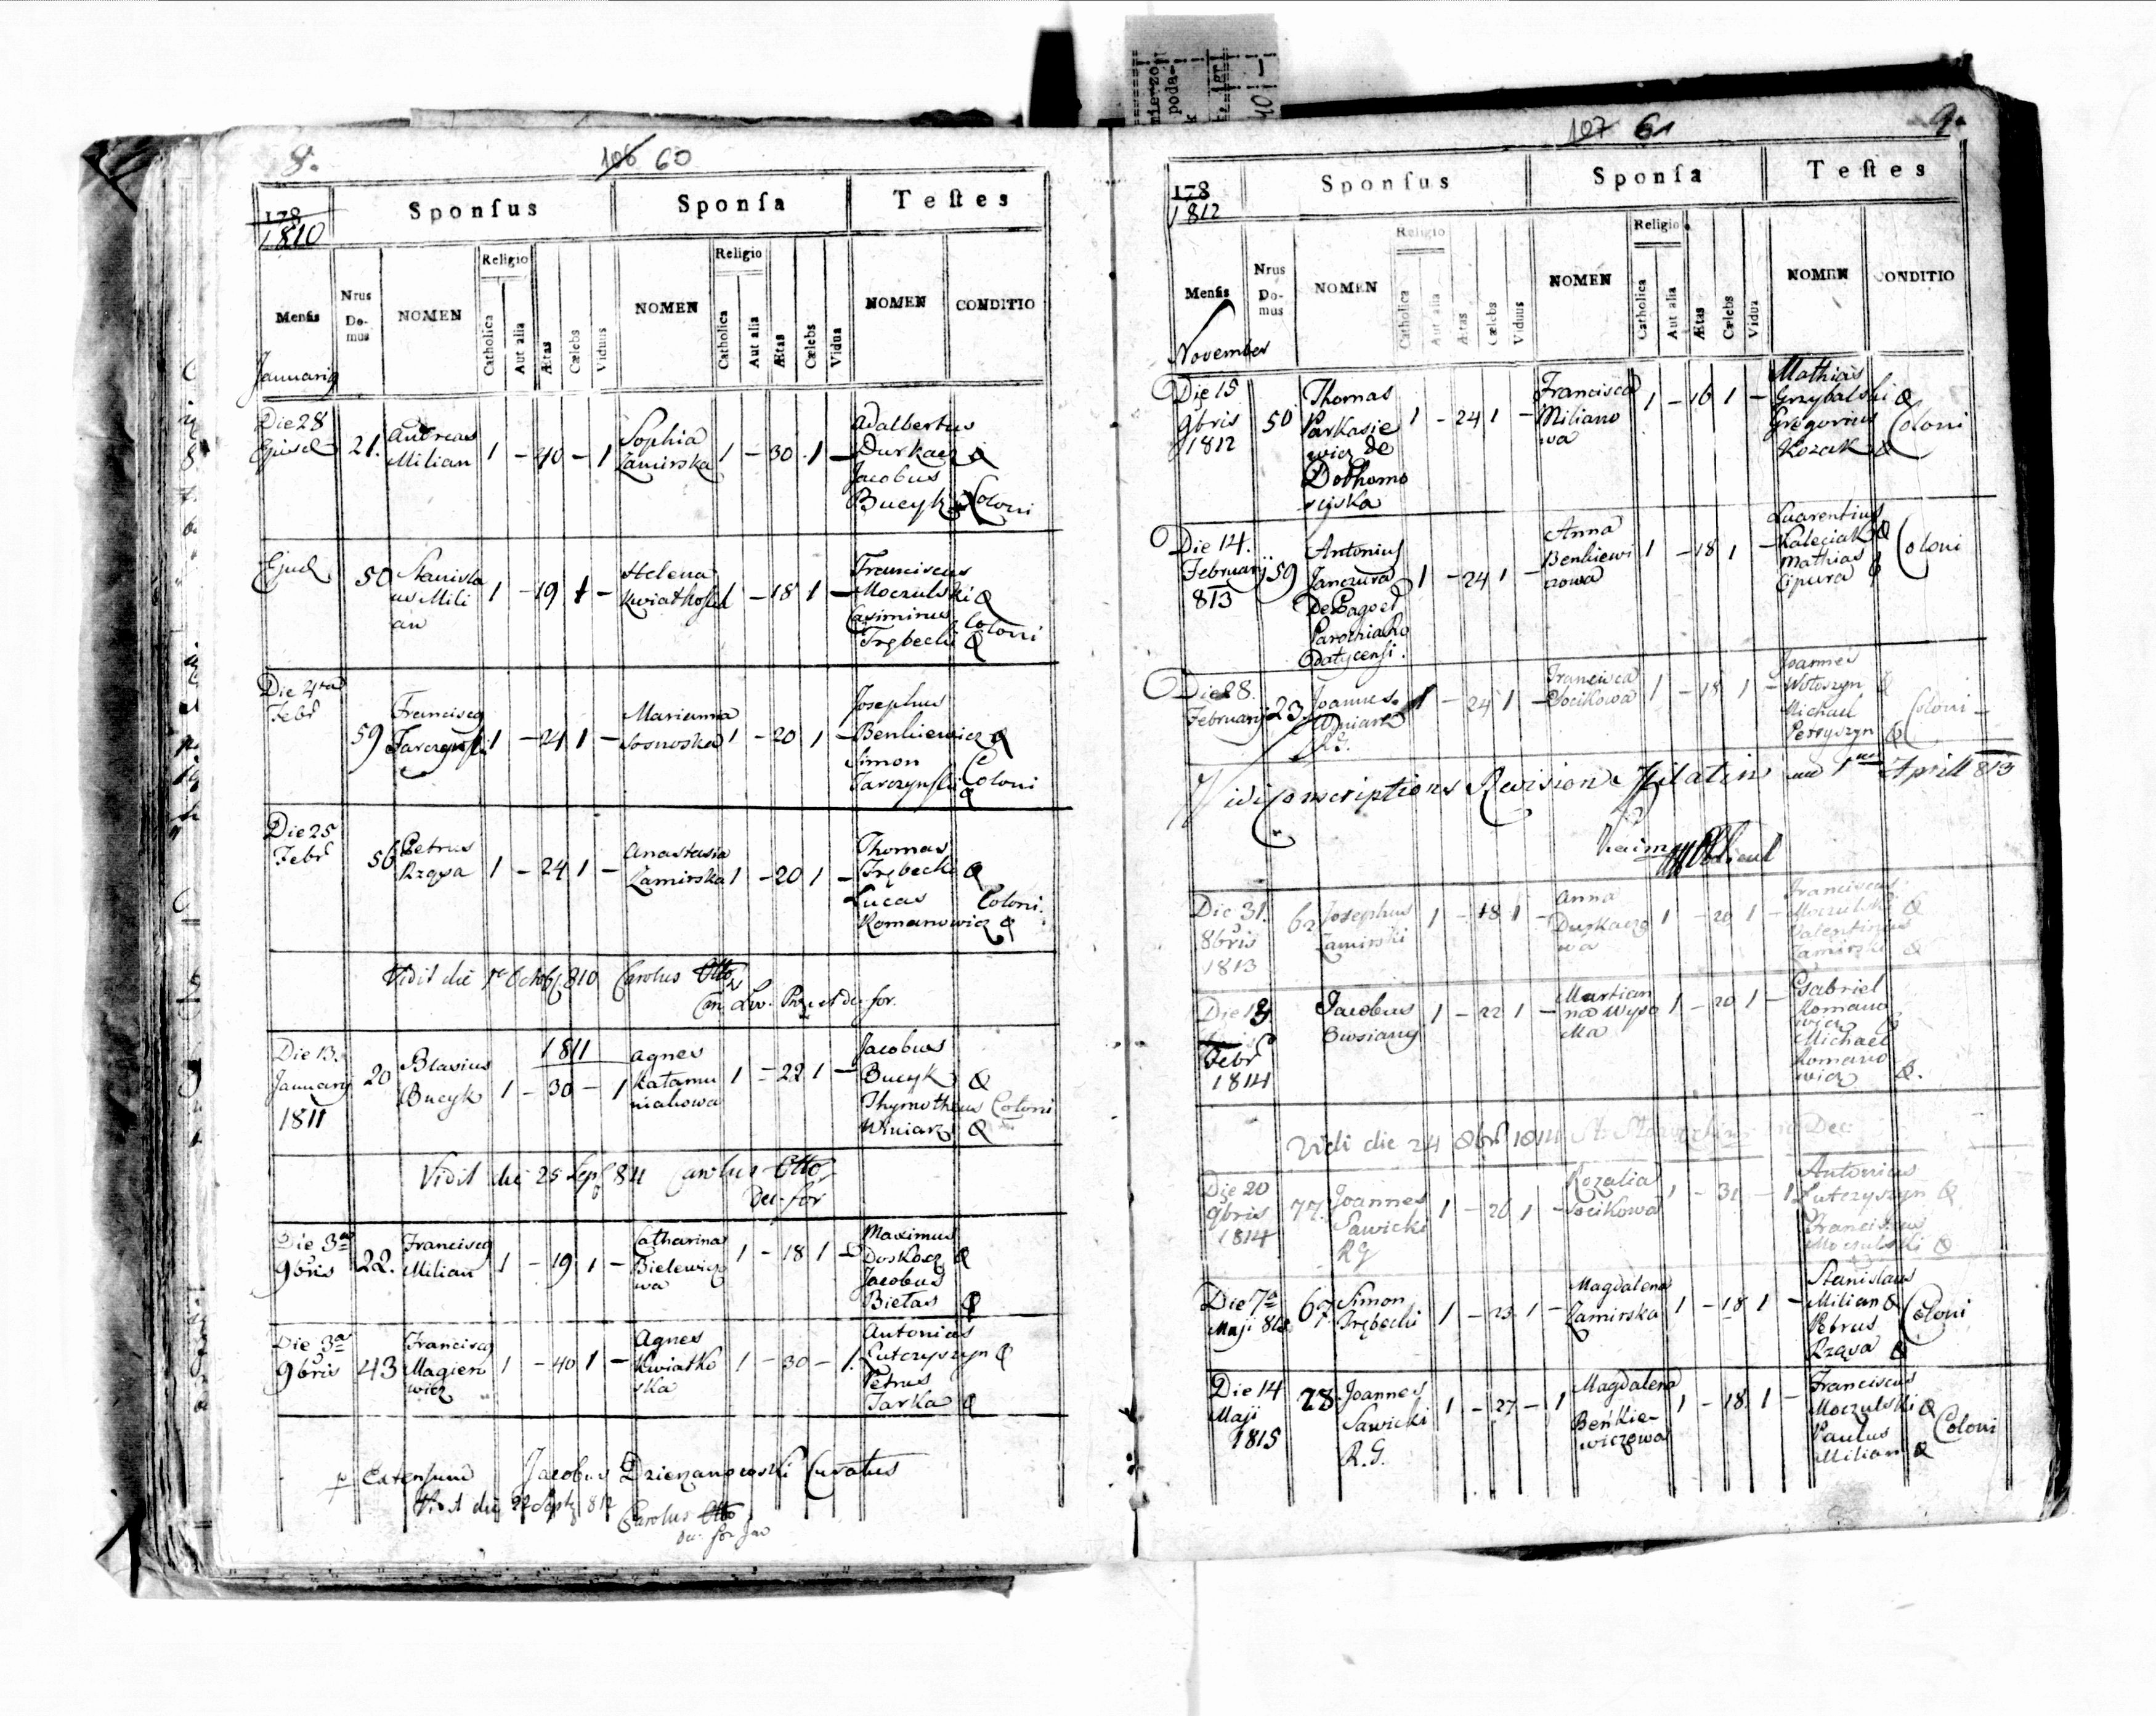 8.
106 60
178
1810
Sponſus
Sponſa
Teſtes
Menſis
Nrus Do-mus
NOMEN
Religio
Catholica
Aut alia
Ætas
Cælebs
Viduus
NOMEN
Religio
Catholica
Aut alia
Ætas
Cælebs
Vidua
NOMEN
CONDITIO
Januarij
Die 28
21.
Andreas
Milian
1 - 40 - 1
Sophia
Zamirska
1 - 30 1 -
Adalbertus
Durkacz
Jacobus
Bucyk
Coloni
50
Stanisla
us Mili
an
1 - 19 1 -
Helena
1 - 18 1 -
Franciscus
Moczulski
Casimirus
Trębecki
Coloni
Die 4ta
Febr
59
Francisc
Tarczynski
1 - 24 1 -
Marianna
Sosnoska
1 - 20 1 -
Josephus
Benkiewicz
Simon
Tarczynski
Coloni
Die 25
Febr
56
Petrus
Rząsa
1 - 24 1 -
Anastasia
Zamirska
1 - 20 1 -
Thomas
Trębecki
Lucas
Romanowicz
Coloni.
Vidit die 1a Octob 810 Carolus Otto
Die 13.
Januarij
1811
20
Blasius
Bucyk
1811
1 - 30 - 1
Agnes
Katamu
niakowa
1 - 22 1 -
Jacobus
Bucyk
Thymotheus
Winiarz
Coloni
Vidit die 25 Sep 811 Carolus Otto
Dec. for
Die 3a
9bris
22.
Francisc
Milian
1 - 19 1 -
Catharina
Bielewicz
wa
1 - 18 1 -
Maximus
Doskocz
Jacobus
Bielas
Die 3a
9bris
43
Francisc
Magiero
wicz
1 - 40 1 -
Agnes
Kwiatko
ska
1 - 30 - 1.
Antonius
Lutczyszyn
Petrus
Tarka
p Extensum Jacobus Dzierzanowski Curatus
Vidit die 22 Sept 812
Carolus Otto
107 61
9.
178
1812
Sponſus
Sponſa
Teſtes
Menſis
Nrus Do-mus
NOMEN
Religio
Catholica
Aut alia
Ætas
Cælebs
Viduus
NOMEN
Religio
Catholica
Aut alia
Ætas
Cælebs
Vidua
NOMEN
CONDITIO
November
Die 15
9bris
1812
50
Thomas
Parkasie
wicz de
Dobhomo
scijska
1 - 24 1 -
Francisca
Miliano
wa
1 - 16 1 -
Mathias
Grzybalski
Gregorius
Kozak
Coloni
Die 14.
Februarij
813
59
Antonius
Janczura
1 - 24 1 -
Anna
Benkiewi
czowa
1 - 18 1 -
Laurentius
Kaleciak
Mathias
Cipura
Coloni
Die 28.
Februarij
23.
Joannes
Winiarz
1 - 24 1 -
Francisca
Socikowa
1 - 18 1 -
Joannes
Wołoszyn
Michael
Petryszyn
Coloni
Vidi Conscriptions Revision 1ten Aprill 813
Die 31.
8bris
1813
62
Josephus
Zamirski
1 - 18 1 -
Anna
Durkaczo
wa
1 - 20 1 -
Franciscus
Moczulski
Valentinus
Zamirski
Febr
1814
Jacobus
Owsiany
1 - 22 1 -
Marian
na Wyso
cka
1 - 20 1 -
Gabriel
Romano
wicz
Michael
Romano
wicz
Vidi die 24 8br 1814
Die 20
9bris
1814
77.
Joannes
Sawicki
RG
1 - 26 1 -
Rozalia
Socikowa
1 - 31 - 1
Antonius
Lutczyszyn
Franciscus
Moczulski
Die 7a
Maji
67
Simon
Trębecki
1 - 23 1 -
Magdalena
Zamirska
1 - 18 1 -
Stanislaus
Milian
Petrus
Rząsa
Coloni
Die 14
Maji
1815
28
Joannes
Sawicki
R.G.
1 - 27 - 1
Magdalena
Beńkie-
wiczowa
1 - 18 1 -
Franciscus
Moczulski
Paulus
Milian
Coloni